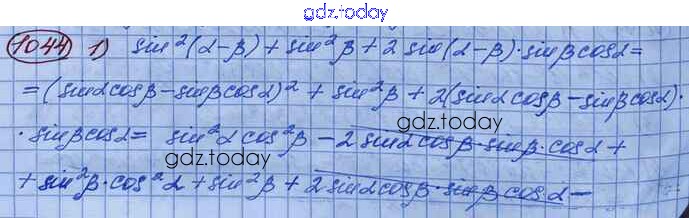 gdz.today
1044 1) sin²(α-β) + sin²β + 2 sin(α-β)·sinβcosα=
=(sinαcosβ-sinβcosα)² + sin²β + 2(sinαcosβ-sinβcosα)·
gdz.today
·sinβcosα= sin²αcos²β - 2sinαcosβ·sinβ·cosα +
gdz.today
+ sin²β·cos²α + sin²β + 2sinαcosβ·sinβcosα -